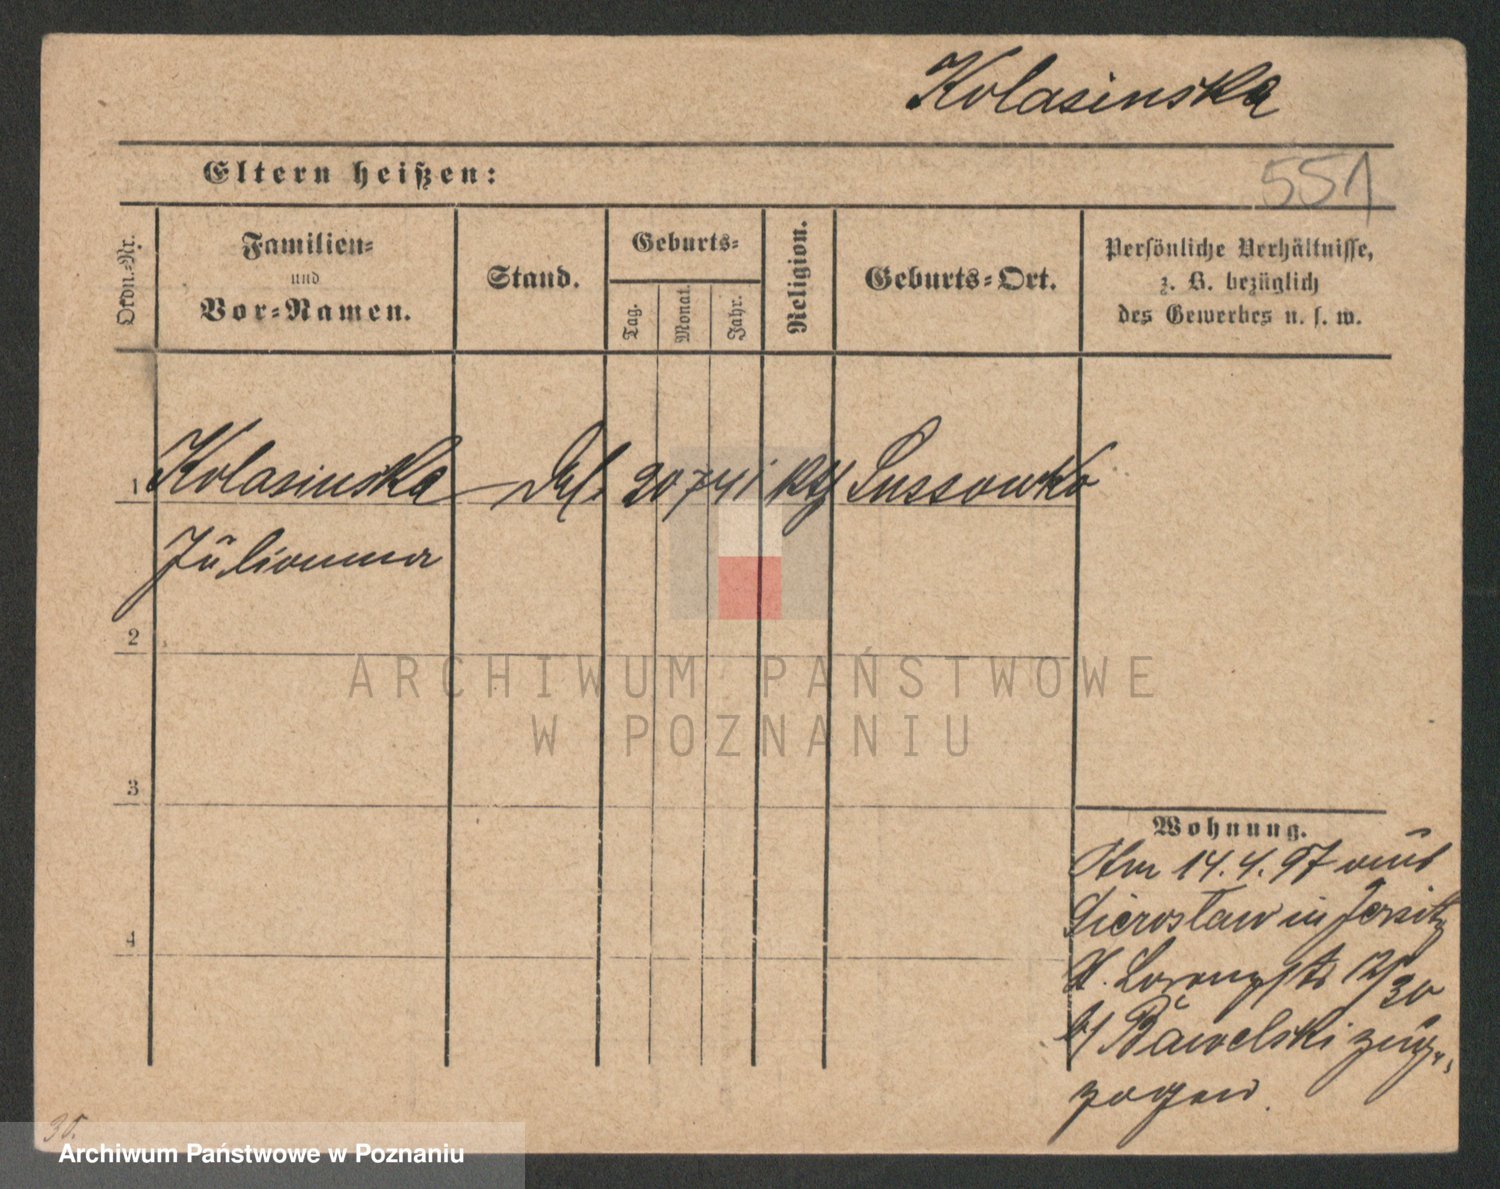 Kolasinska
Eltern heißen:
551
Ordn.-Nr.
Familien-
und
Vor-Namen.
Stand.
Geburts-
Tag.
Monat.
Jahr.
Religion.
Geburts-Ort.
Persönliche Verhältnisse,
z. B. bezüglich
des Gewerbes u. s. w.
1 Kolasinska 20 7 41 kth Sussowko
Julianna
2
3
4
ARCHIWUM PAŃSTWOWE
W POZNANIU
Wohnung.
Am 14.4.97 aus
Sierosław in Jersitz
12/30
b/ Bawelski zuge-
zogen.
Archiwum Państwowe w Poznaniu